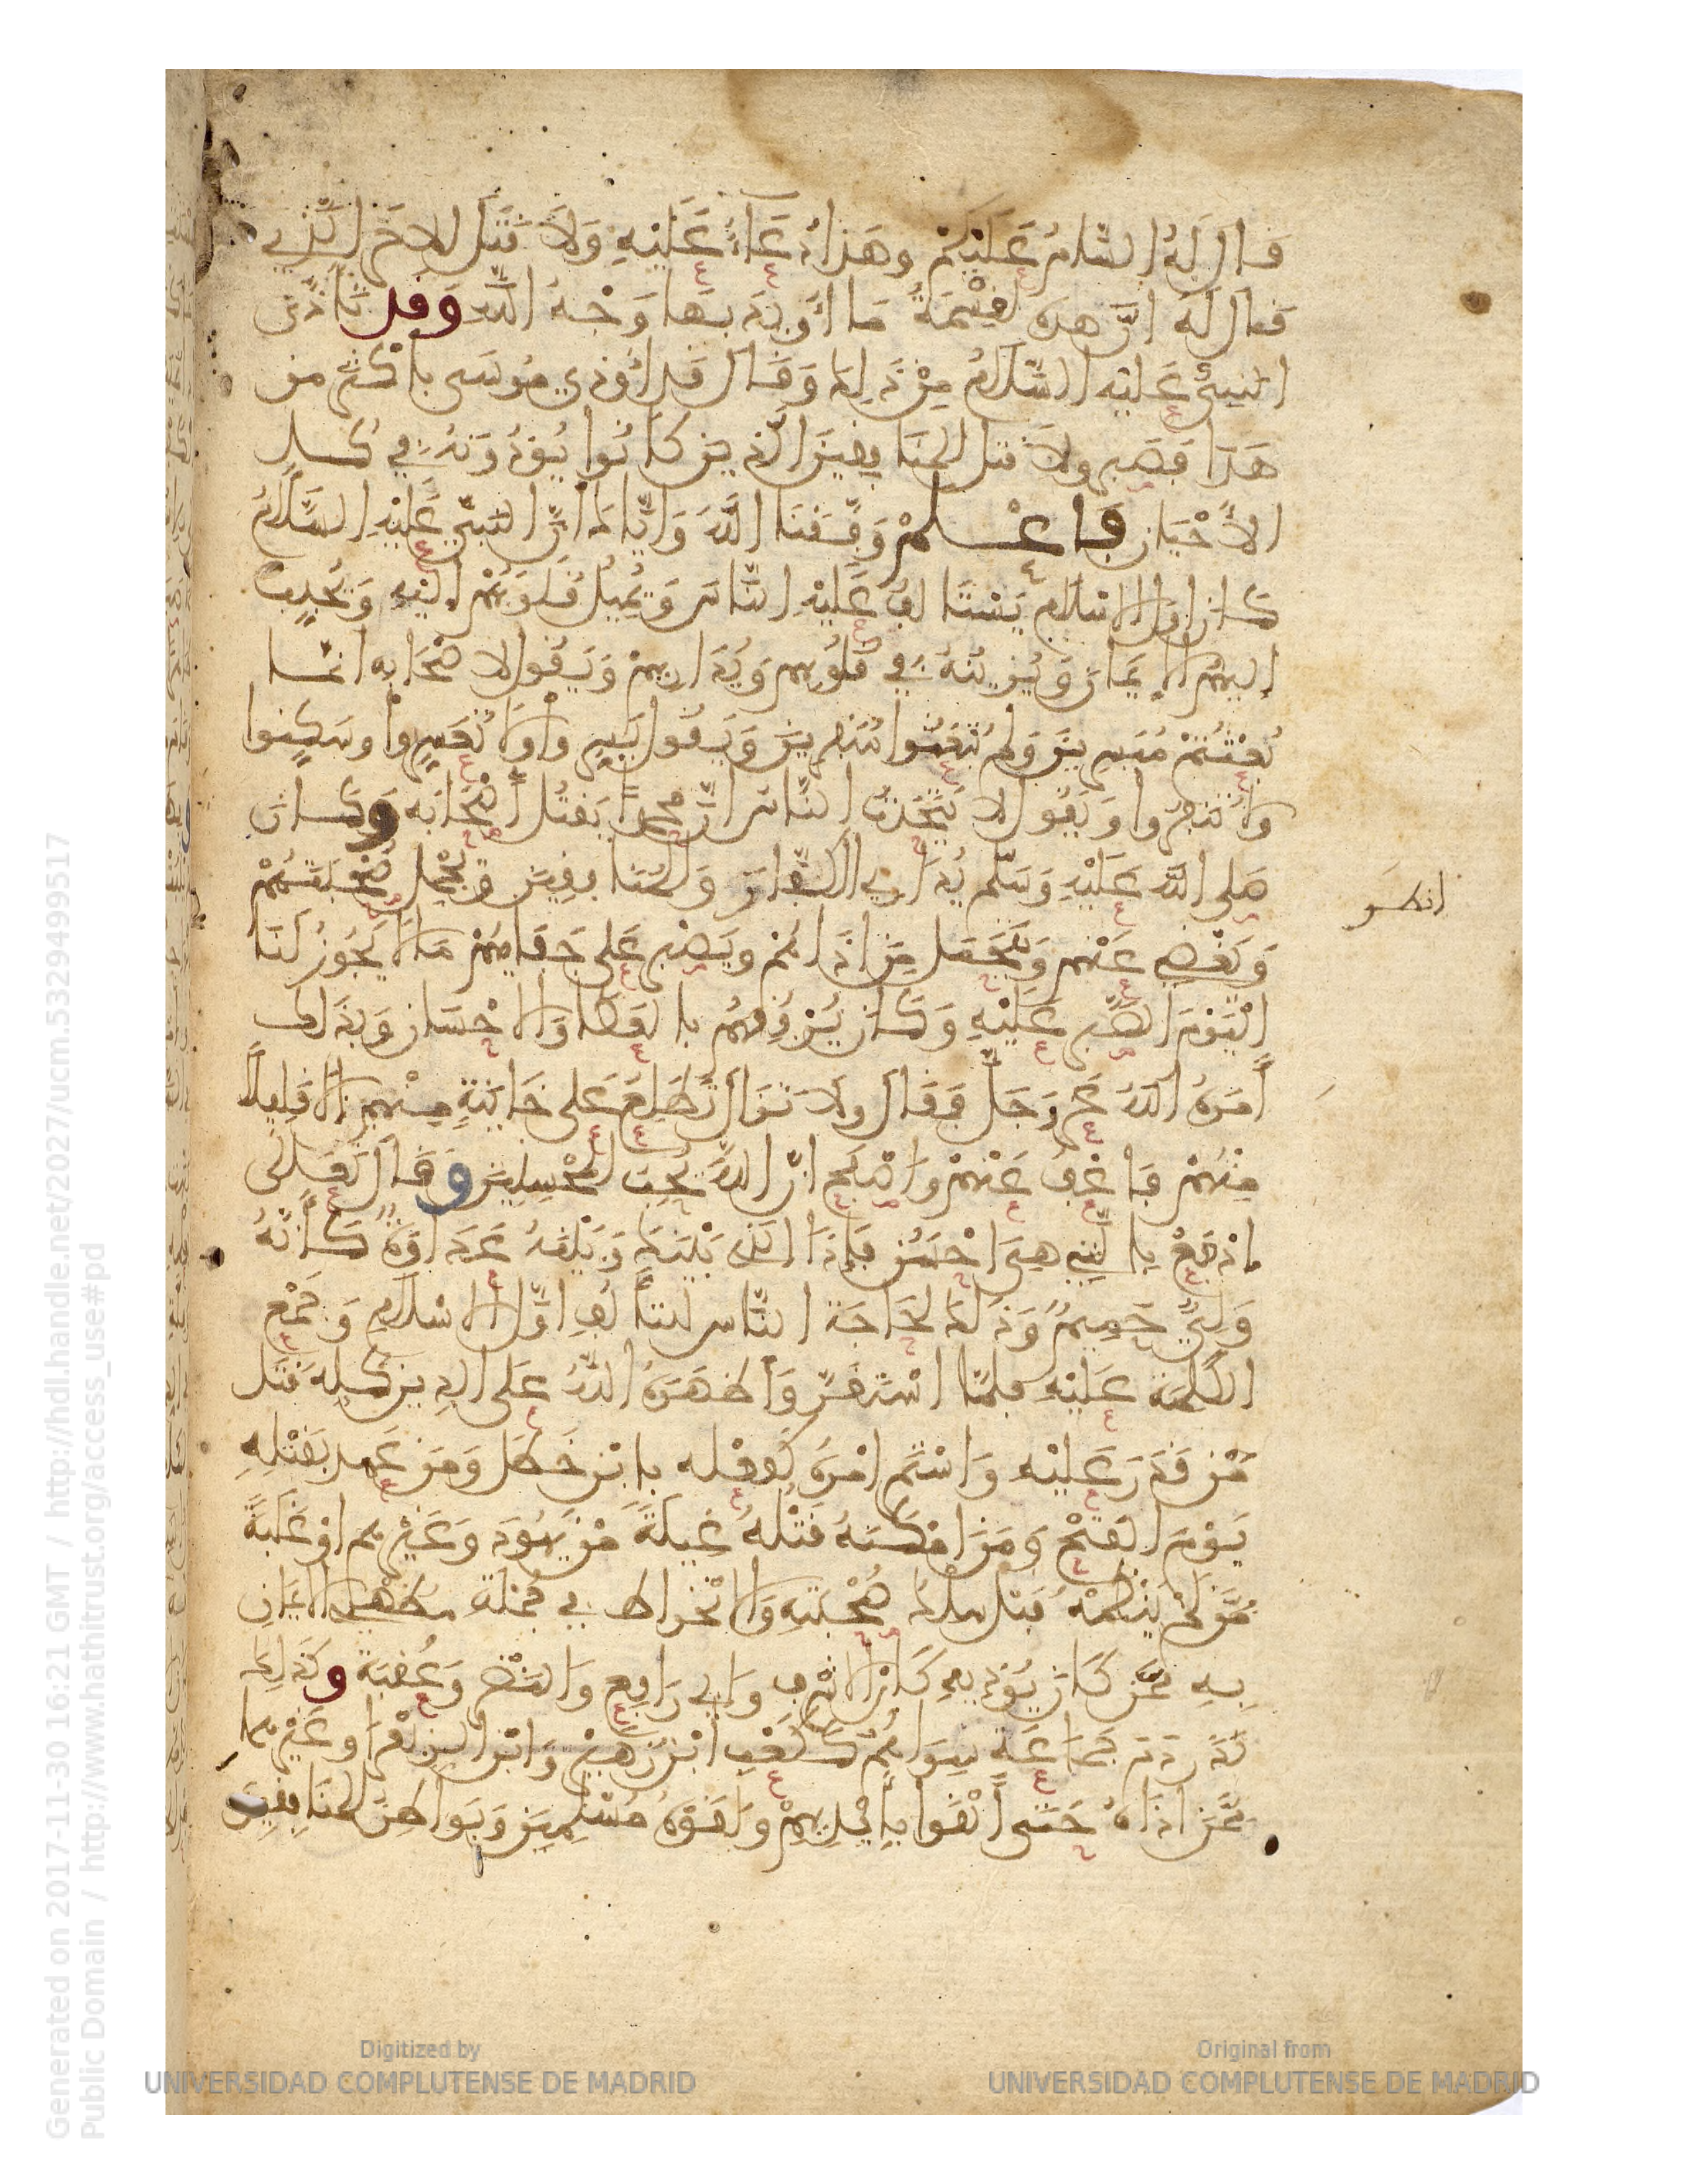 قال له السام عليكم وهذا دعاء عليه ولا قتل الاخر الذي
قال له ان هذه لقسمة ما اريد بها وجه الله وقد تاذى
النبي عليه السلام من ذلك وقال قد اوذي موسى باكثر من
هذا فصبر ولا قتل المنافقين الذين كانوا يوذونه في كل
الاحيان فاعلم وفقنا الله واياك ان النبي عليه السلام
كان اول الاسلام يستالف عليه الناس ويميل قلوبهم اليه ويحبب
اليهم الايمان ويزينه في قلوبهم ويداريهم ويقول لاصحابه انما
بعثتم مبسرين ولم تبعثوا منفرين ويقول يسروا ولا تعسروا وسكنوا
ولا تنفروا ويقول لا يتحدث الناس ان محمدا يقتل اصحابه وكان
صلى الله عليه وسلم يداري الكفار والمنافقين ويجمل صحبتهم
ويغضي عنهم ويتحمل من اذاهم ويصبر على جفايهم ما لا يجوز لنا
اليوم الصبر عليه وكان يرفقهم بالعطا والاحسان وبذلك
امره الله عز وجل فقال ولا تزال تطلع على خاينة منهم الا قليلا
منهم فاعف عنهم واصفح ان الله يحب المحسنين وقال تعلى
ادفع بالتي هي احسن فاذا الذي بينك وبينه عداوة كانه
ولي حميم وذلك لحاجة الناس للتالف اول الاسلام وجمع
الكلمة عليه فلما استقر واظهره الله على الدين كله قتل
من قدر عليه واشتهر امره كفعله بابن خطل ومن عهد بقتله
يوم الفتح ومن امكنه قتله غيلة من يهود وغيرهم او غلبة
ممن لم ينظمه قبل سلك صحبته والانخراط في جملة مظهري الايمان
به ممن كان يوذيه كابن الاشرف وابي رافع والنضر وعقبة وكذلك
ندر دم جماعة سواهم ككعب ابن زهير وابن الزبعرا وغيرهما
ممن اذاه حتى القوا بايديهم ولقوه مسلمين وبواطن المنافقين
Generated on 2017-11-30 16:21 GMT / http://hdl.handle.net/2027/ucm.5329499517
Public Domain / http://www.hathitrust.org/access_use#pd
Digitized by
UNIVERSIDAD COMPLUTENSE DE MADRID
Original from
UNIVERSIDAD COMPLUTENSE DE MADRID